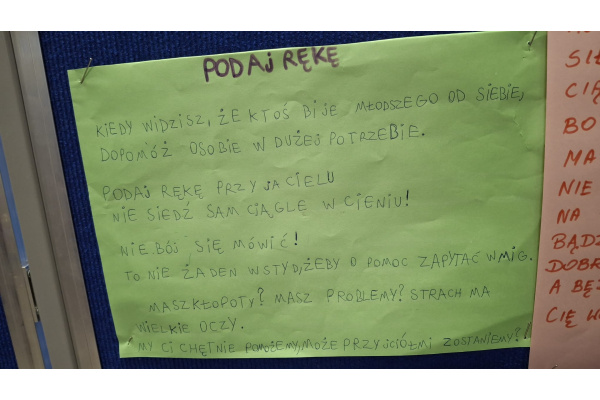 PODAJ RĘKĘ
KIEDY WIDZISZ, ŻE KTOŚ BIJE MŁODSZEGO OD SIEBIE,
DOPOMÓŻ OSOBIE W DUŻEJ POTRZEBIE.
PODAJ RĘKĘ PRZYJACIELU
NIE SIEDŹ SAM CIĄGLĘ W CIENIU!
NIE BÓJ SIĘ MÓWIĆ!
TO NIE ŻADEN WSTYD, ŻEBY O POMOC ZAPYTAĆ W MIG.
MASZ KŁOPOTY? MASZ PROBLEMY? STRACH MA
WIELKIE OCZY.
MY CI CHĘTNIE POMOŻEMY, MOŻE PRZYJCIÓŁMI ZOSTANIEMY?!
SIŁ
CIĄ
BO
MA
NIE
NA
BĄDŹ
DOBR
A BĘ
CIĘ